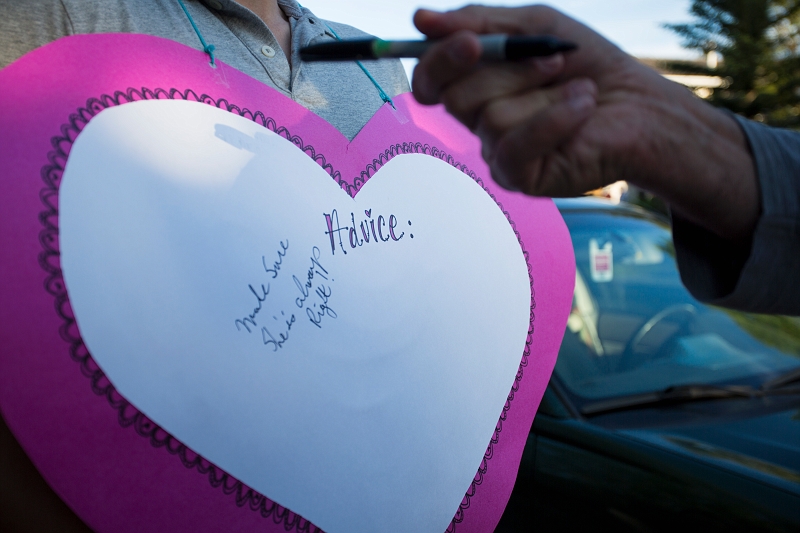 Advice:
Make Sure
She's always
Right!